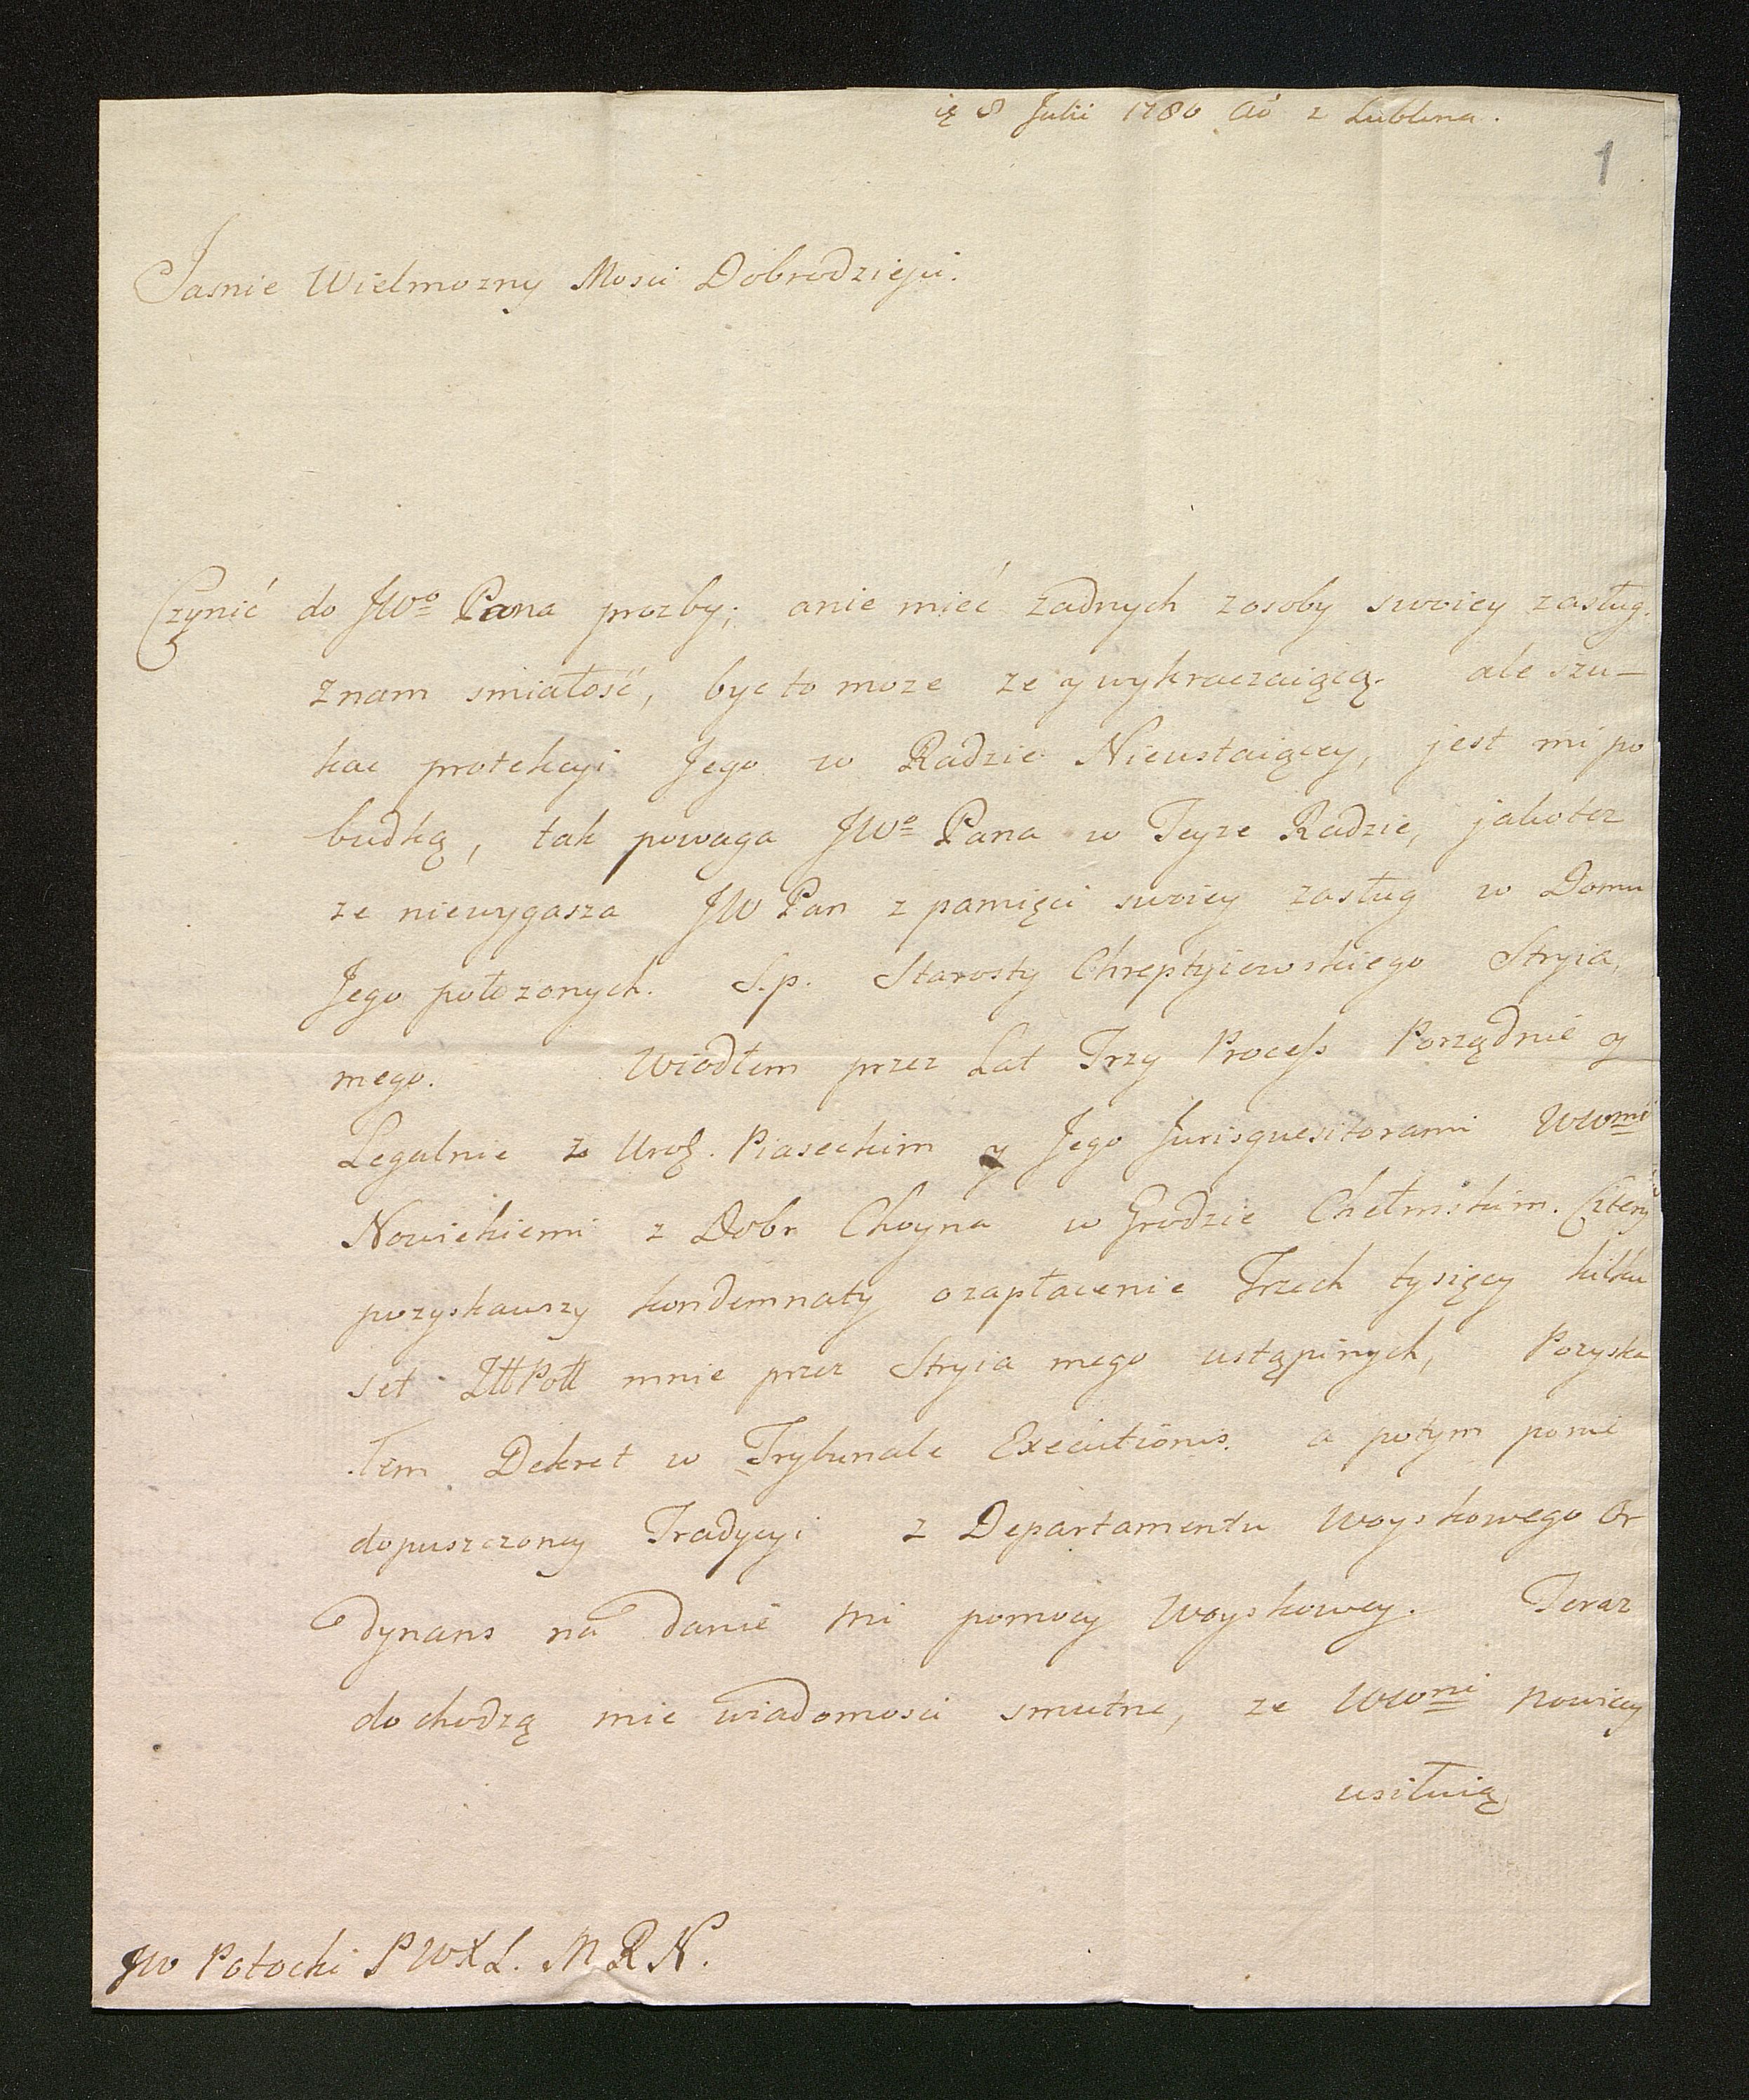 8 Julii 1780 Aō z Lublina.
1
Jasnie Wielmozny Mosci Dobrodzieju.
Czynić do JWo Pana prozby; anie mieć zadnych zosoby swoicy zasług.
znam smiałość, byc to moze ze y wykraczaiącą. ale szu-
kac protekcyi Jego w Radzie Nieustaiącey, jest mi po
budką, tak powaga JWo Pana w Teyze Radzie, jakotez
ze niewygasza JW Pan z pamięci swoiey zasług w Domu
Jego połozonych. S.p. Starosty Chreptyiowskiego Stryia,
mego. Wiodłem przez Lat Trzy Process Porządnie y
Legalnie z Uroz. Piaseckim y Jego Jurisquesitorami WWmi
Nowickiemi z Dobr Choyna w Grodzie Chełmskim. Cztery
pozyskawszy kondemnaty ozapłacenie Trzech tysięcy kilku
set Złł Poll mnie przez Stryia mego ustąpinych, Pozyska
łem Dekret w Trybunale Executionis. a potym ponie
dopuszczoney Tradycyi z Departamentu Woyskowego Or
dynans na danie mi pomocy Woyskowey. Teraz
dochodzą mie wiadomosci smutne, ze WWni Nowiccy
usiłuią
JW Potocki P W X L. M R N.